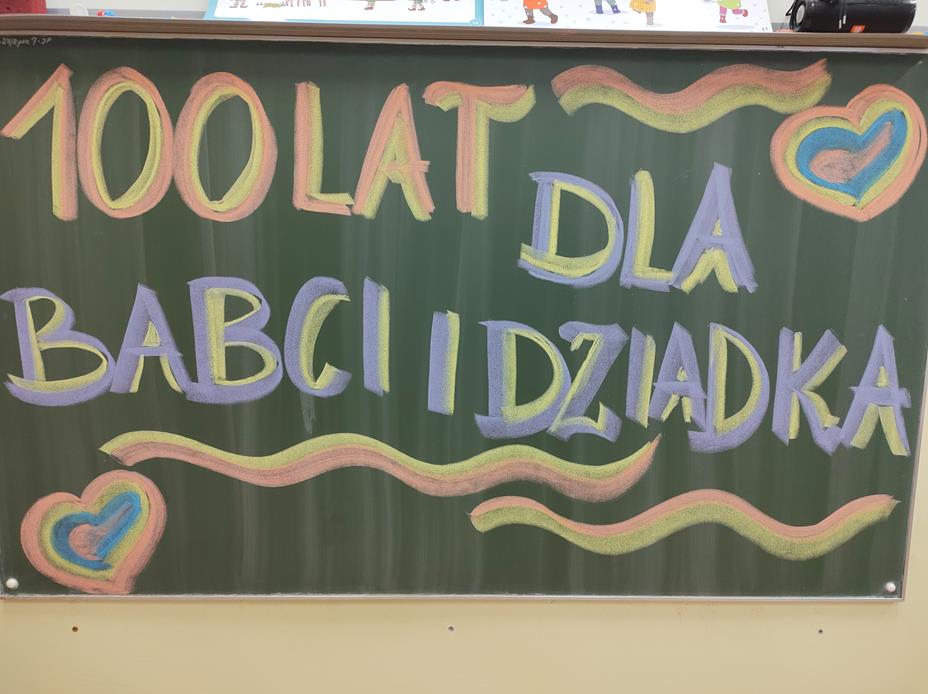 100 LAT
DLA
BABCI I DZIADKA